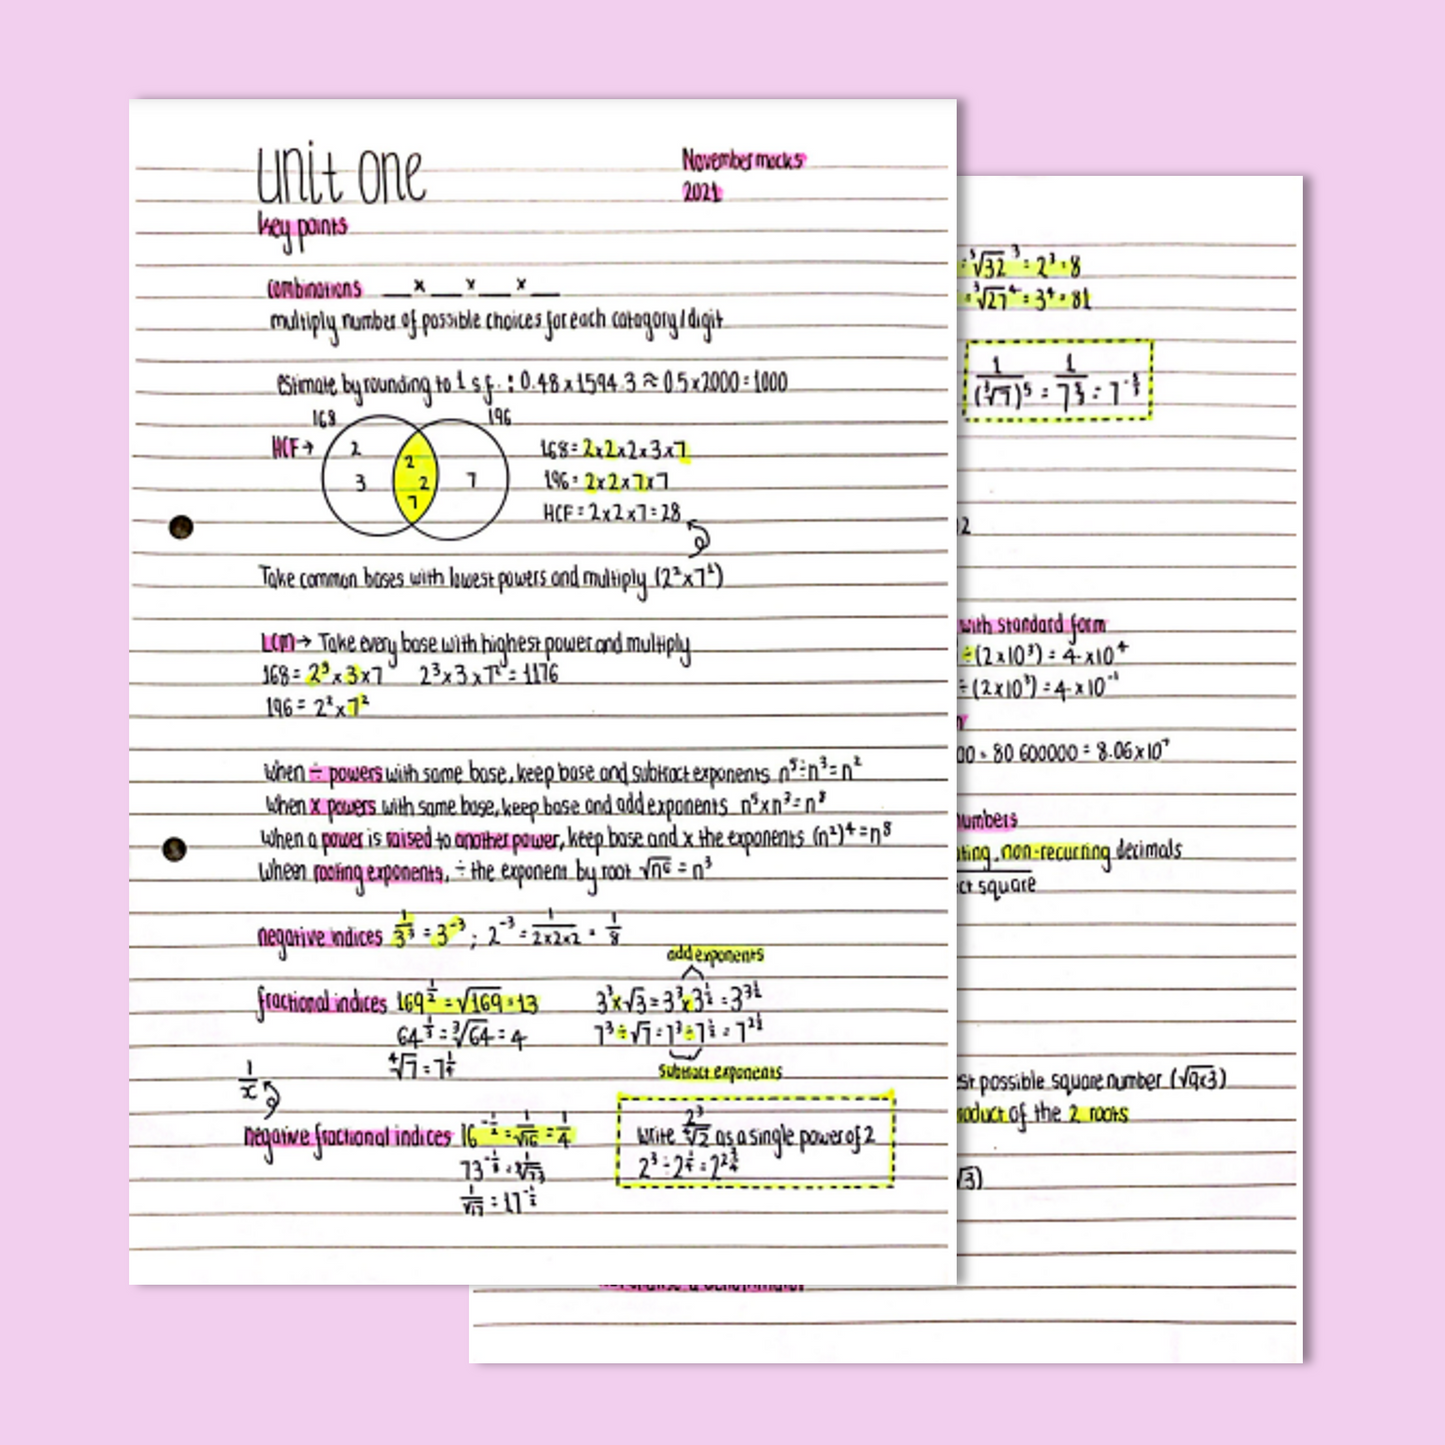 Unit One
November mocks
2021
key points
combinations __ x __ x __ x __
multiply number of possible choices for each catagory/digit
estimate by rounding to 1 s.f. : 0.48 x 1594.3 ≈ 0.5 x 2000 = 1000
168 196
HCF → 2 3 2 2 7 7
168 = 2x2x2x3x7
196 = 2x2x7x7
HCF = 2x2x7 = 28
Take common bases with lowest powers and multiply (2² x 7¹)
LCM → Take every base with highest power and multiply
168 = 2³ x 3 x 7 2³ x 3 x 7² = 1176
196 = 2² x 7²
When ÷ powers with same base, keep base and subtract exponents n⁵ ÷ n³ = n²
When x powers with same base, keep base and add exponents n⁵ x n³ = n⁸
When a power is raised to another power, keep base and x the exponents (n²)⁴ = n⁸
When rooting exponents, ÷ the exponent by root √n⁶ = n³
negative indices 1/3³ = 3⁻³ ; 2⁻³ = 1/2x2x2 = 1/8
add exponents
fractional indices 169^1/2 = √169 = 13 3³ x √3 = 3³ x 3^1/2 = 3^3 1/2
64^1/3 = ³√64 = 4 7³ ÷ √7 = 7³ ÷ 7^1/2 = 7^2 1/2
⁴√7 = 7^1/4
subtract exponents
1/x
negative fractional indices 16^-1/2 = 1/√16 = 1/4
1/√17 = 17^-1/2
Write 2³/⁴√2 as a single power of 2
2³ ÷ 2^1/4 = 2^2 3/4
= ⁵√32³ = 2³ = 8
= ³√27⁴ = 3⁴ = 81
1/(³√7)⁵ = 1/7^5/3 = 7^-5/3
with standard form
÷ (2x10³) = 4 x 10⁴
÷ (2x10³) = 4 x 10⁻¹
00 = 80 600000 = 8.06x10⁷
numbers
ting, non-recurring decimals
ct square
st possible square number (√9x3)
roduct of the 2 roots
√3)